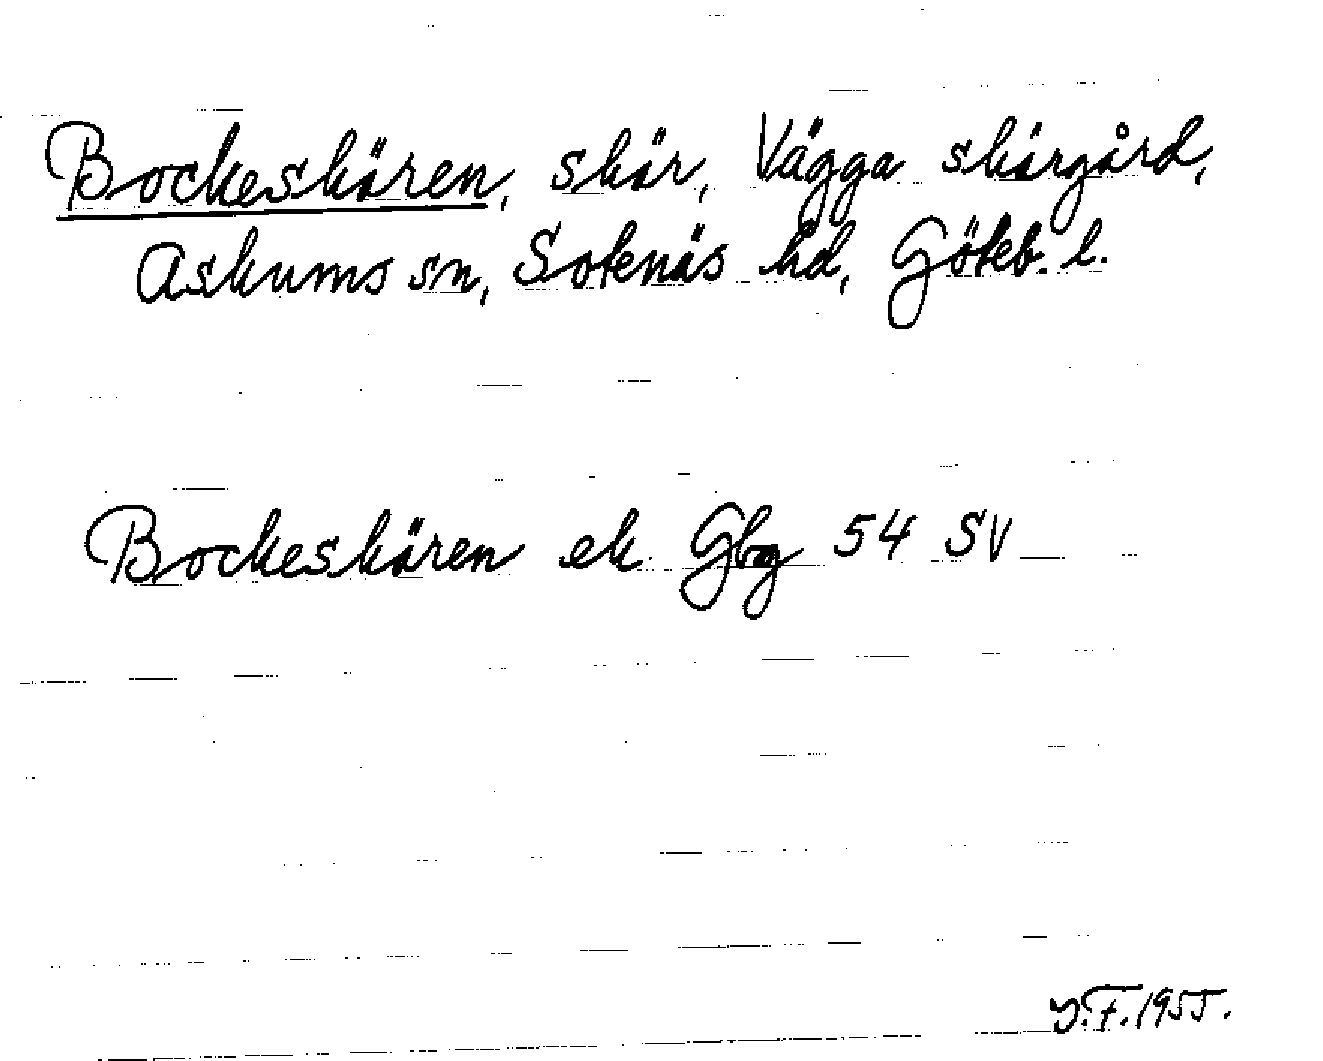 Bockeskären, skär, Vägga skärgård,
Askums sn, Sotenäs hd, Göteb. l.
Bockeskären ek Gbg 54 SV
J.F. 1955.